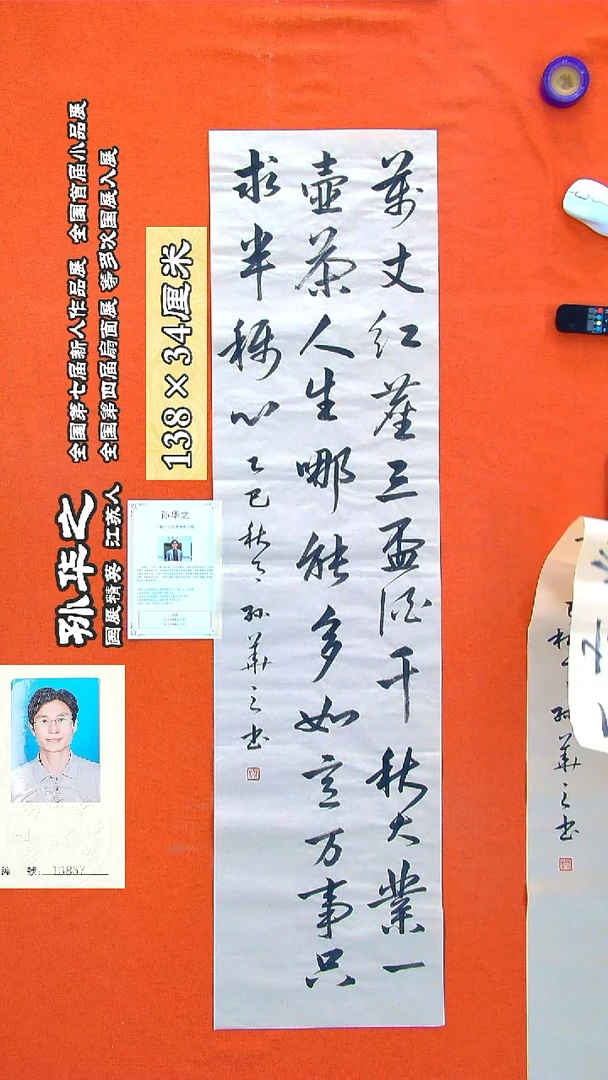 萬丈红塵三盃酒千秋大業一
壺茶人生哪能多如意万事只
求半稱心乙巳秋 孙華之书
138×34厘米
孙华之
国展精英 江苏人
全国第七届新人作品展 全国首届小品展
全国第四届扇面展 等多次国展入展
孙华之
號:
孙華之书